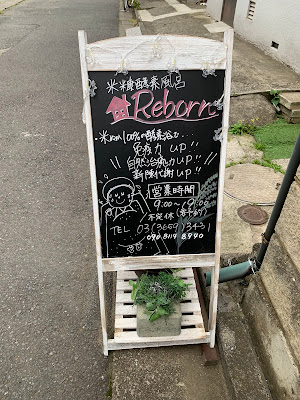 米糠酵素風呂
Reborn
・米ぬか100%の酵素浴で・・・
免疫力 UP!!
自然治癒力UP!!
新陳代謝UP!!
営業時間
9:00〜19:00
不定休
TEL 03(3659)3431